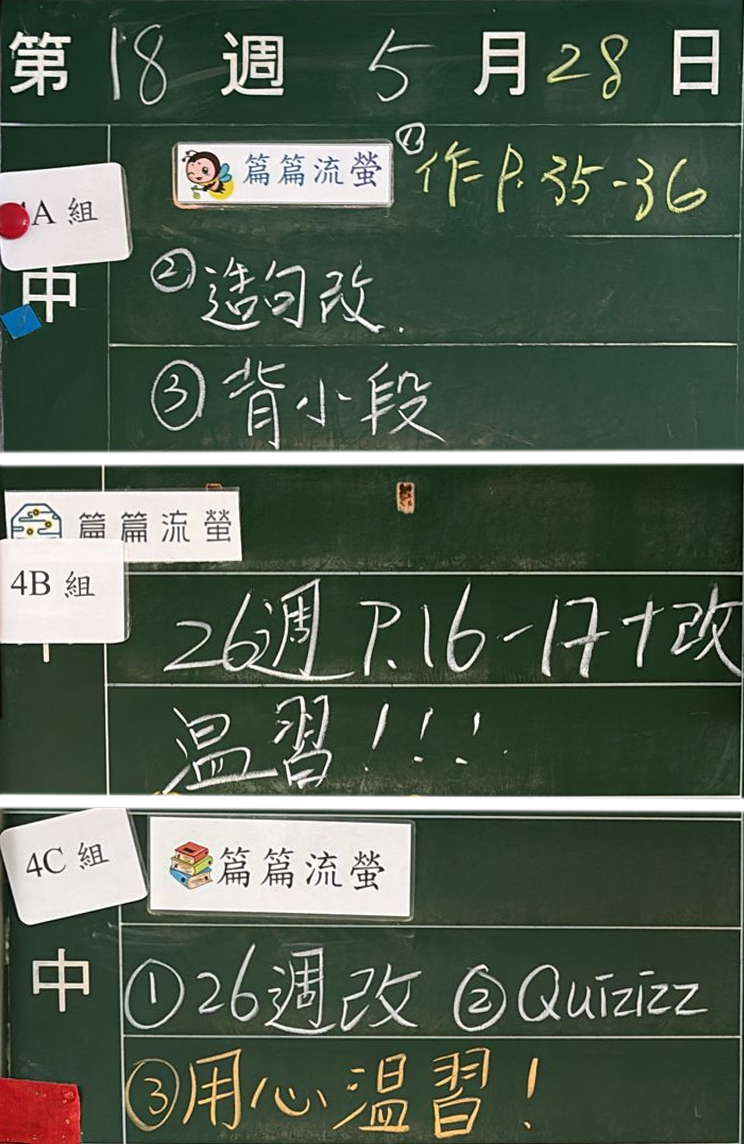 第 18 週 5 月 28 日
篇篇流螢 ① 作 P. 35-36
4A 組
中 ② 造句改.
③ 背小段
篇篇流螢
4B 組
26週 P.16-17+改
温習!!!
4C 組 篇篇流螢
中 ①26週改 ②Quizizz
③用心温習!